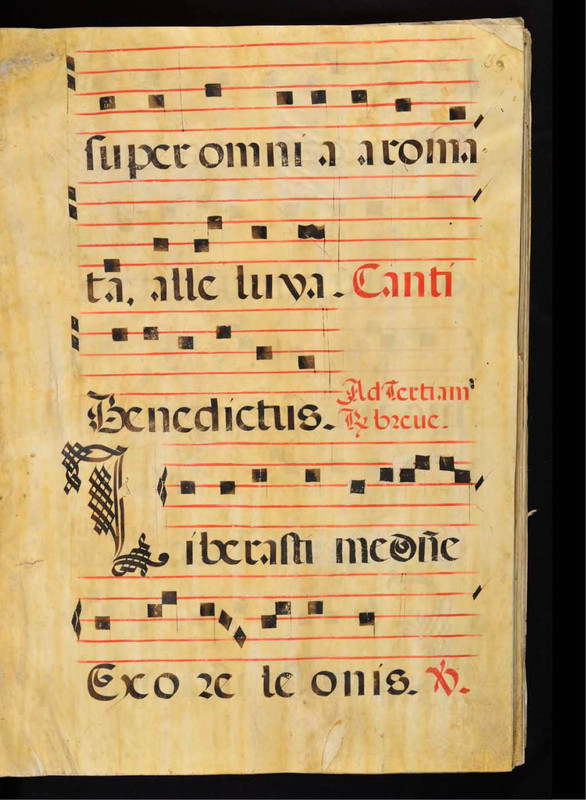 36
super omni a aroma
ta, alle luya. Canti
Benedictus. Ad Tertiam
℟ breue.
Liberasti me dn̄e
Ex o re le onis. ℣.